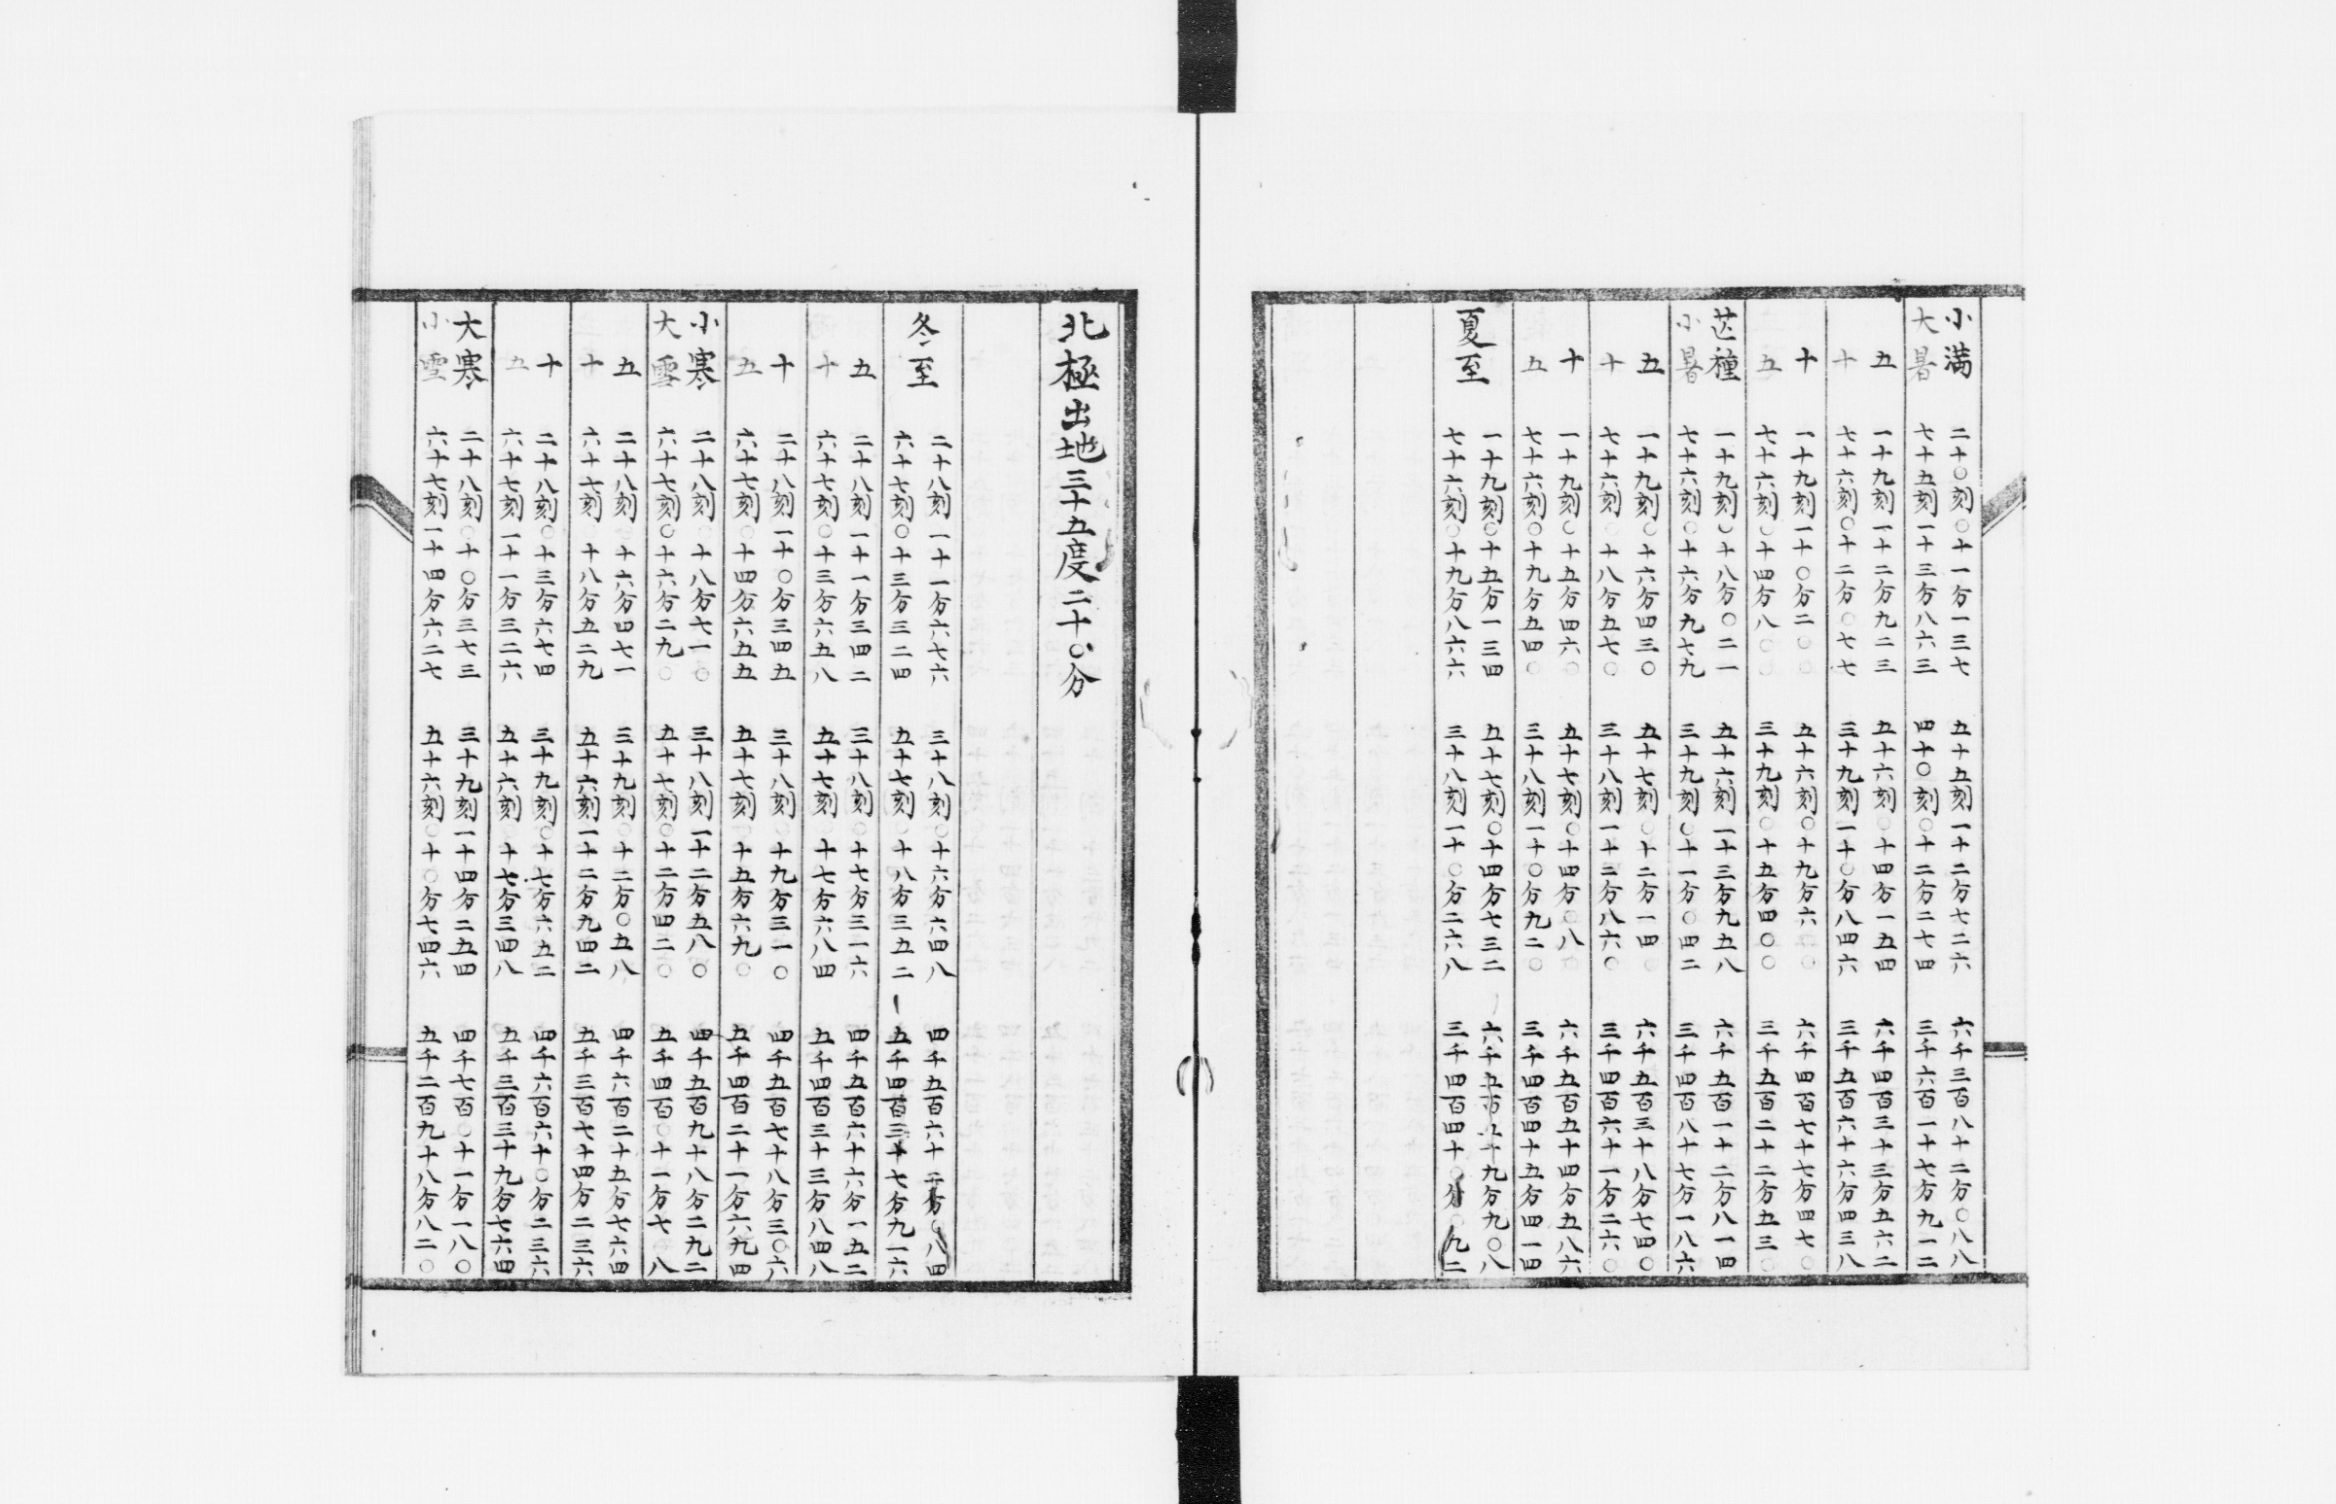 小滿 二十〇刻〇十一分一三七 五十五刻一十二分七二六 六千三百八十二分〇八八
大暑 七十五刻一十三分八六三 四十〇刻〇十二分二七四 三千六百一十七分九一二
五 一十九刻一十二分九二三 五十六刻〇十四分一五四 六千四百三十三分五六二
十 七十六刻〇十二分〇七七 三十九刻一十〇分八四六 三千五百六十六分四三八
十 一十九刻一十〇分二〇〇 五十六刻〇十九分六〇〇 六千四百七十七分四七〇
五 七十六刻〇十四分八〇〇 三十九刻〇十五分四〇〇 三千五百二十二分五三〇
芒種 一十九刻〇十八分〇二一 五十六刻一十三分九五八 六千五百一十二分八一四
小暑 七十六刻〇十六分九七九 三十九刻〇十一分〇四二 三千四百八十七分一八六
五 一十九刻〇十六分四三〇 五十七刻〇十二分一四〇 六千五百三十八分七四〇
十 七十六刻〇十八分五七〇 三十八刻一十二分八六〇 三千四百六十一分二六〇
十 一十九刻〇十五分四六〇 五十七刻〇十四分〇八〇 六千五百五十四分五八六
五 七十六刻〇十九分五四〇 三十八刻一十〇分九二〇 三千四百四十五分四一四
夏至 一十九刻〇十五分一三四 五十七刻〇十四分七三二 六千五百五十九分九〇八
七十六刻〇十九分八六六 三十八刻一十〇分二六八 三千四百四十〇分〇九二
北極出地三十五度二十〇分
冬至 二十八刻一十一分六七六 三十八刻〇十六分六四八 四千五百六十二分〇八四
六十七刻〇十三分三二四 五十七刻〇十八分三五二 五千四百三十七分九一六
五 二十八刻一十一分三四二 三十八刻〇十七分三一六 四千五百六十六分一五二
十 六十七刻〇十三分六五八 五十七刻〇十七分六八四 五千四百三十三分八四八
十 二十八刻一十〇分三四五 三十八刻〇十九分三一〇 四千五百七十八分三〇六
五 六十七刻〇十四分六五五 五十七刻〇十五分六九〇 五千四百二十一分六九四
小寒 二十八刻〇十八分七一〇 三十八刻一十二分五八〇 四千五百九十八分二九二
大雪 六十七刻〇十六分二九〇 五十七刻〇十二分四二〇 五千四百〇十一分七〇八
五 二十八刻〇十六分四七一 三十九刻〇十二分〇五八 四千六百二十五分七六四
十 六十七刻〇十八分五二九 五十六刻一十二分九四二 五千三百七十四分二三六
十 二十八刻〇十三分六七四 三十九刻〇十七分六五二 四千六百六十〇分二三六
五 六十七刻一十一分三二六 五十六刻〇十七分三四八 五千三百三十九分七六四
大寒 二十八刻〇十〇分三七三 三十九刻一十四分二五四 四千七百〇十一分一八〇
小雪 六十七刻一十四分六二七 五十六刻〇十〇分七四六 五千二百九十八分八二〇